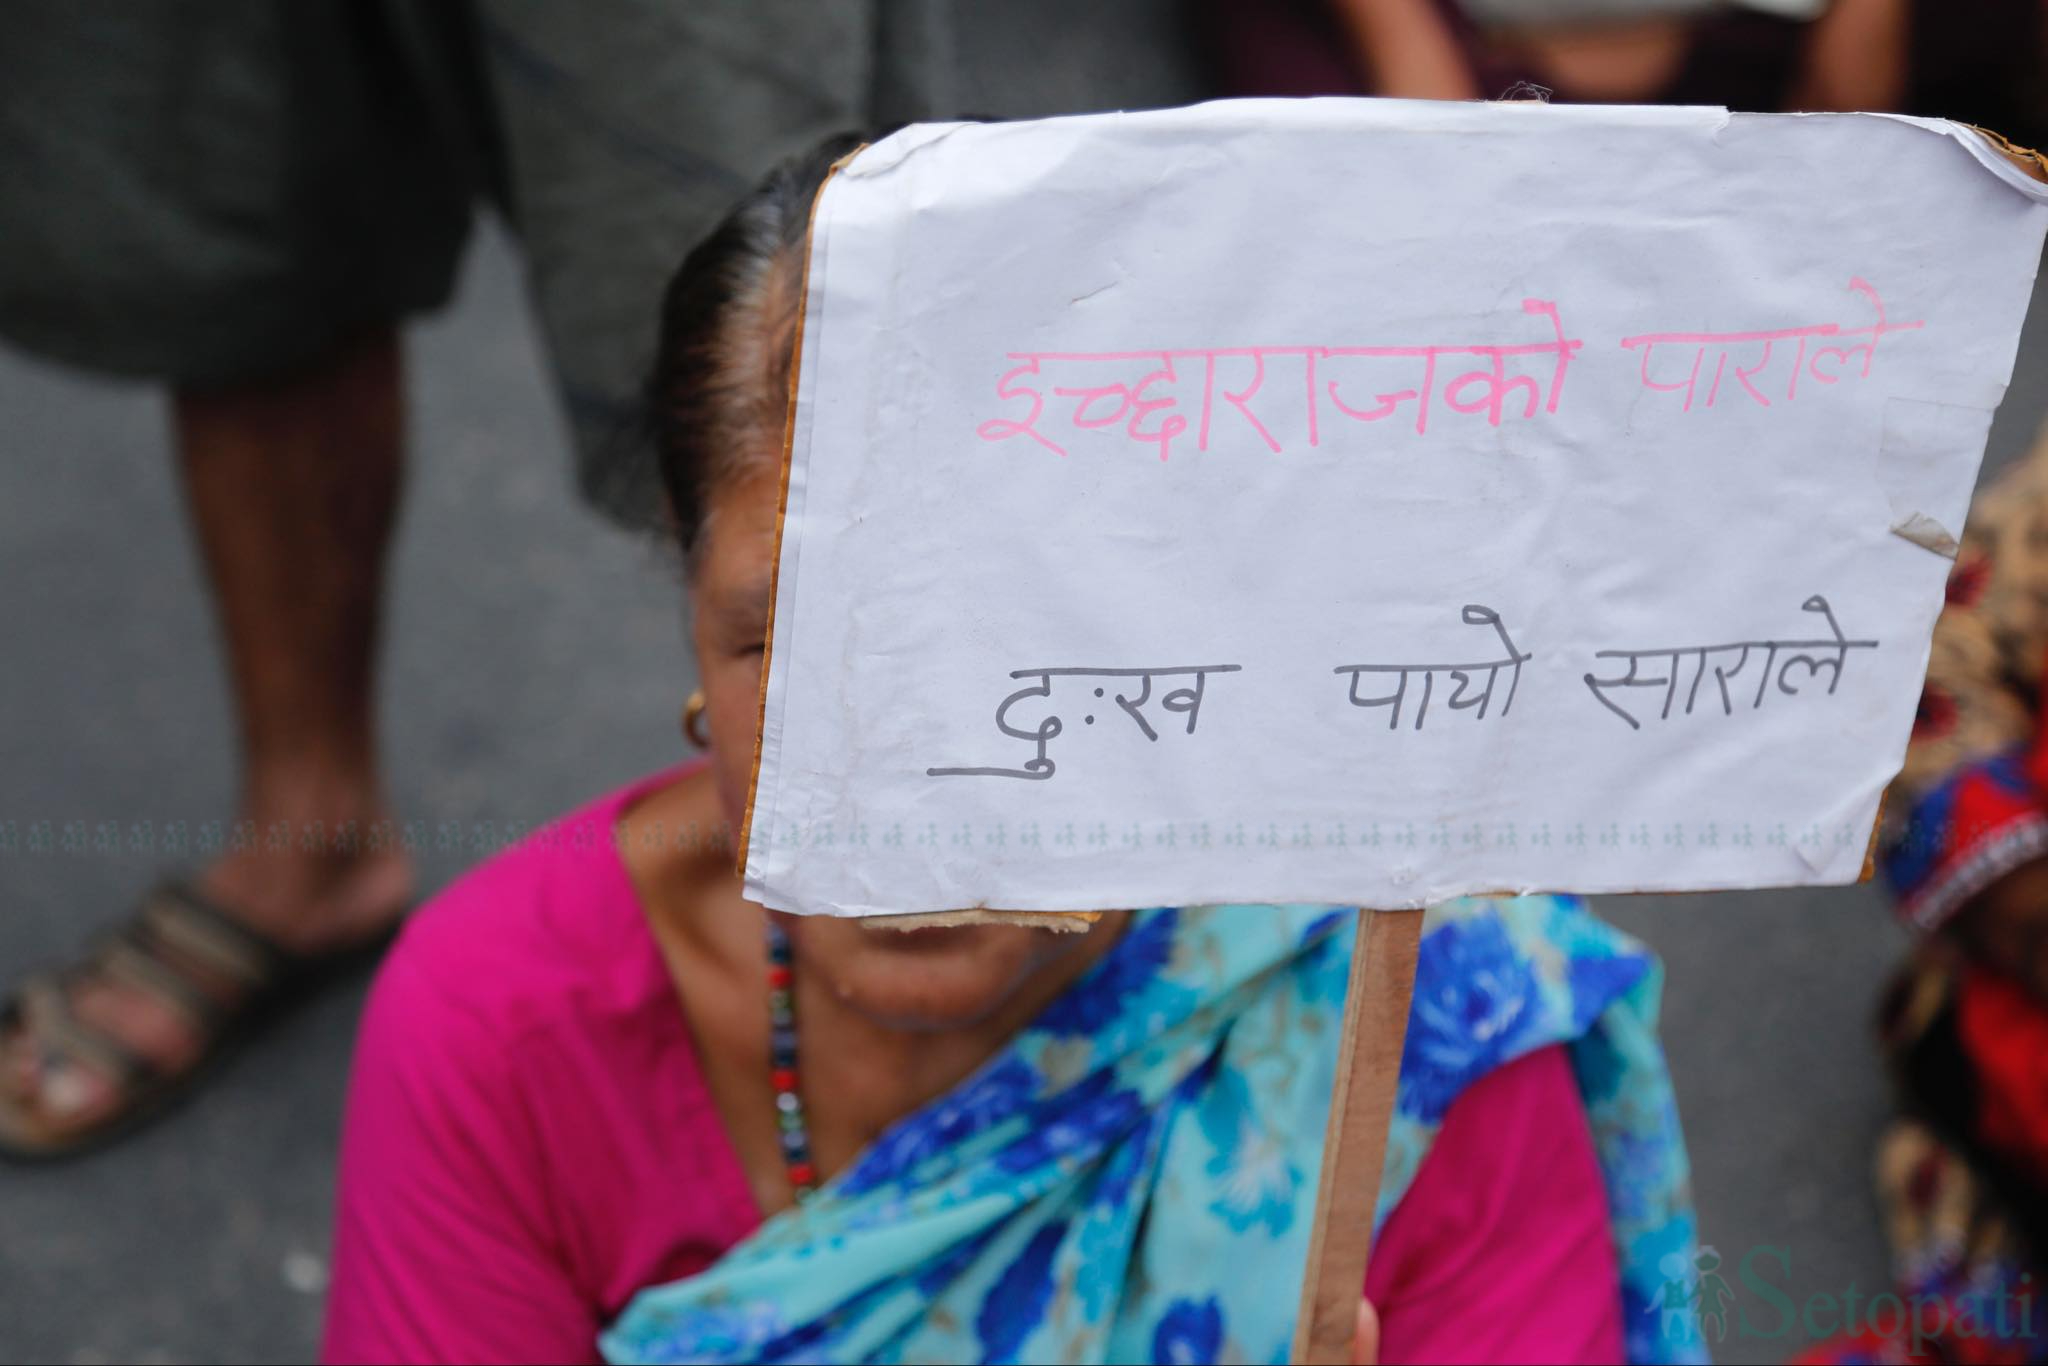 इच्छाराजको पाराले
दुःख पायो साराले
Setopati